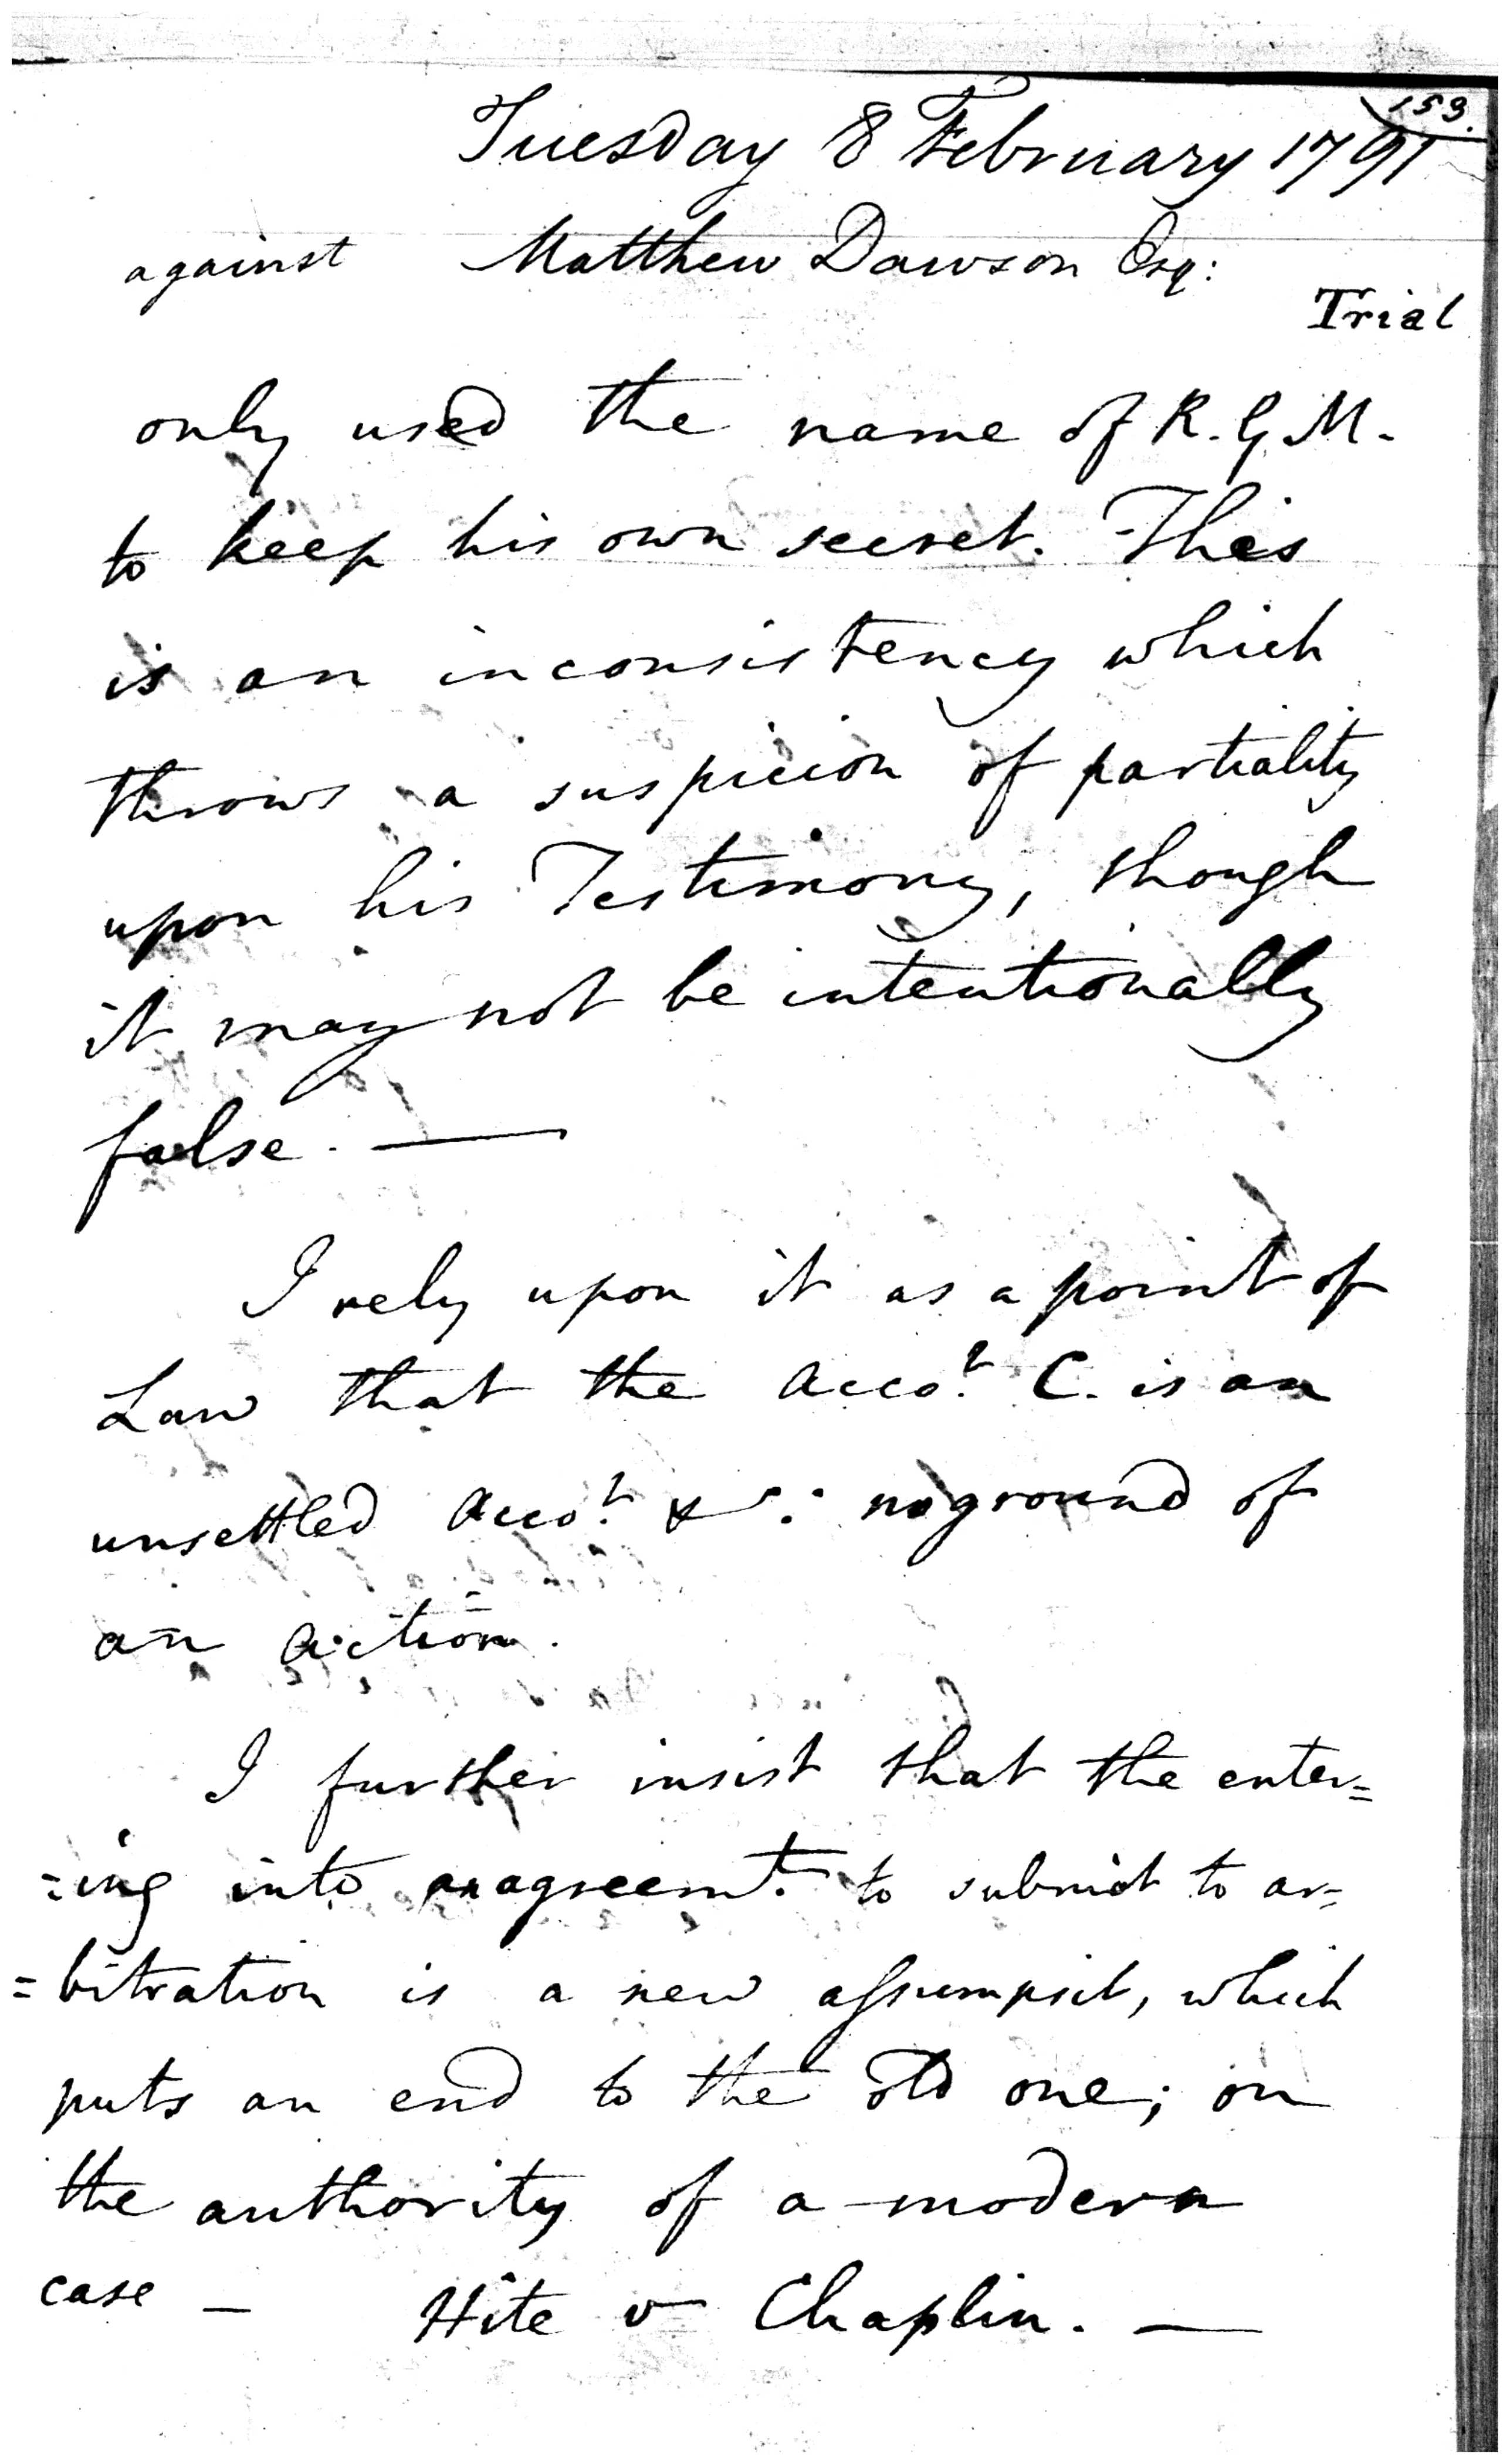 153.
Tuesday 8 February 1791
against Matthew Dawson Esq:
Trial
only used the name of R. G. M.
to keep his own secret. This
is an inconsistency which
throws a suspicion of partiality
upon his Testimony, though
it may not be intentionally
false. —
I rely upon it as a point of
Law that the Acco.t C. is an
unsettled Acco.t & : no ground of
an action.
I further insist that the enter=
=ing into an agreem.t to submit to ar=
=bitration is a new assumpsit, which
puts an end to the old one; on
the authority of a modern
case — Hite v Chaplin. —